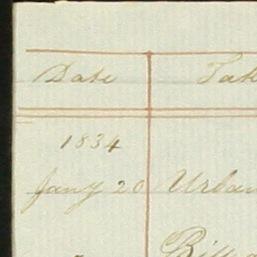 Date Tak
1834
Jany 20 Urban
Bill